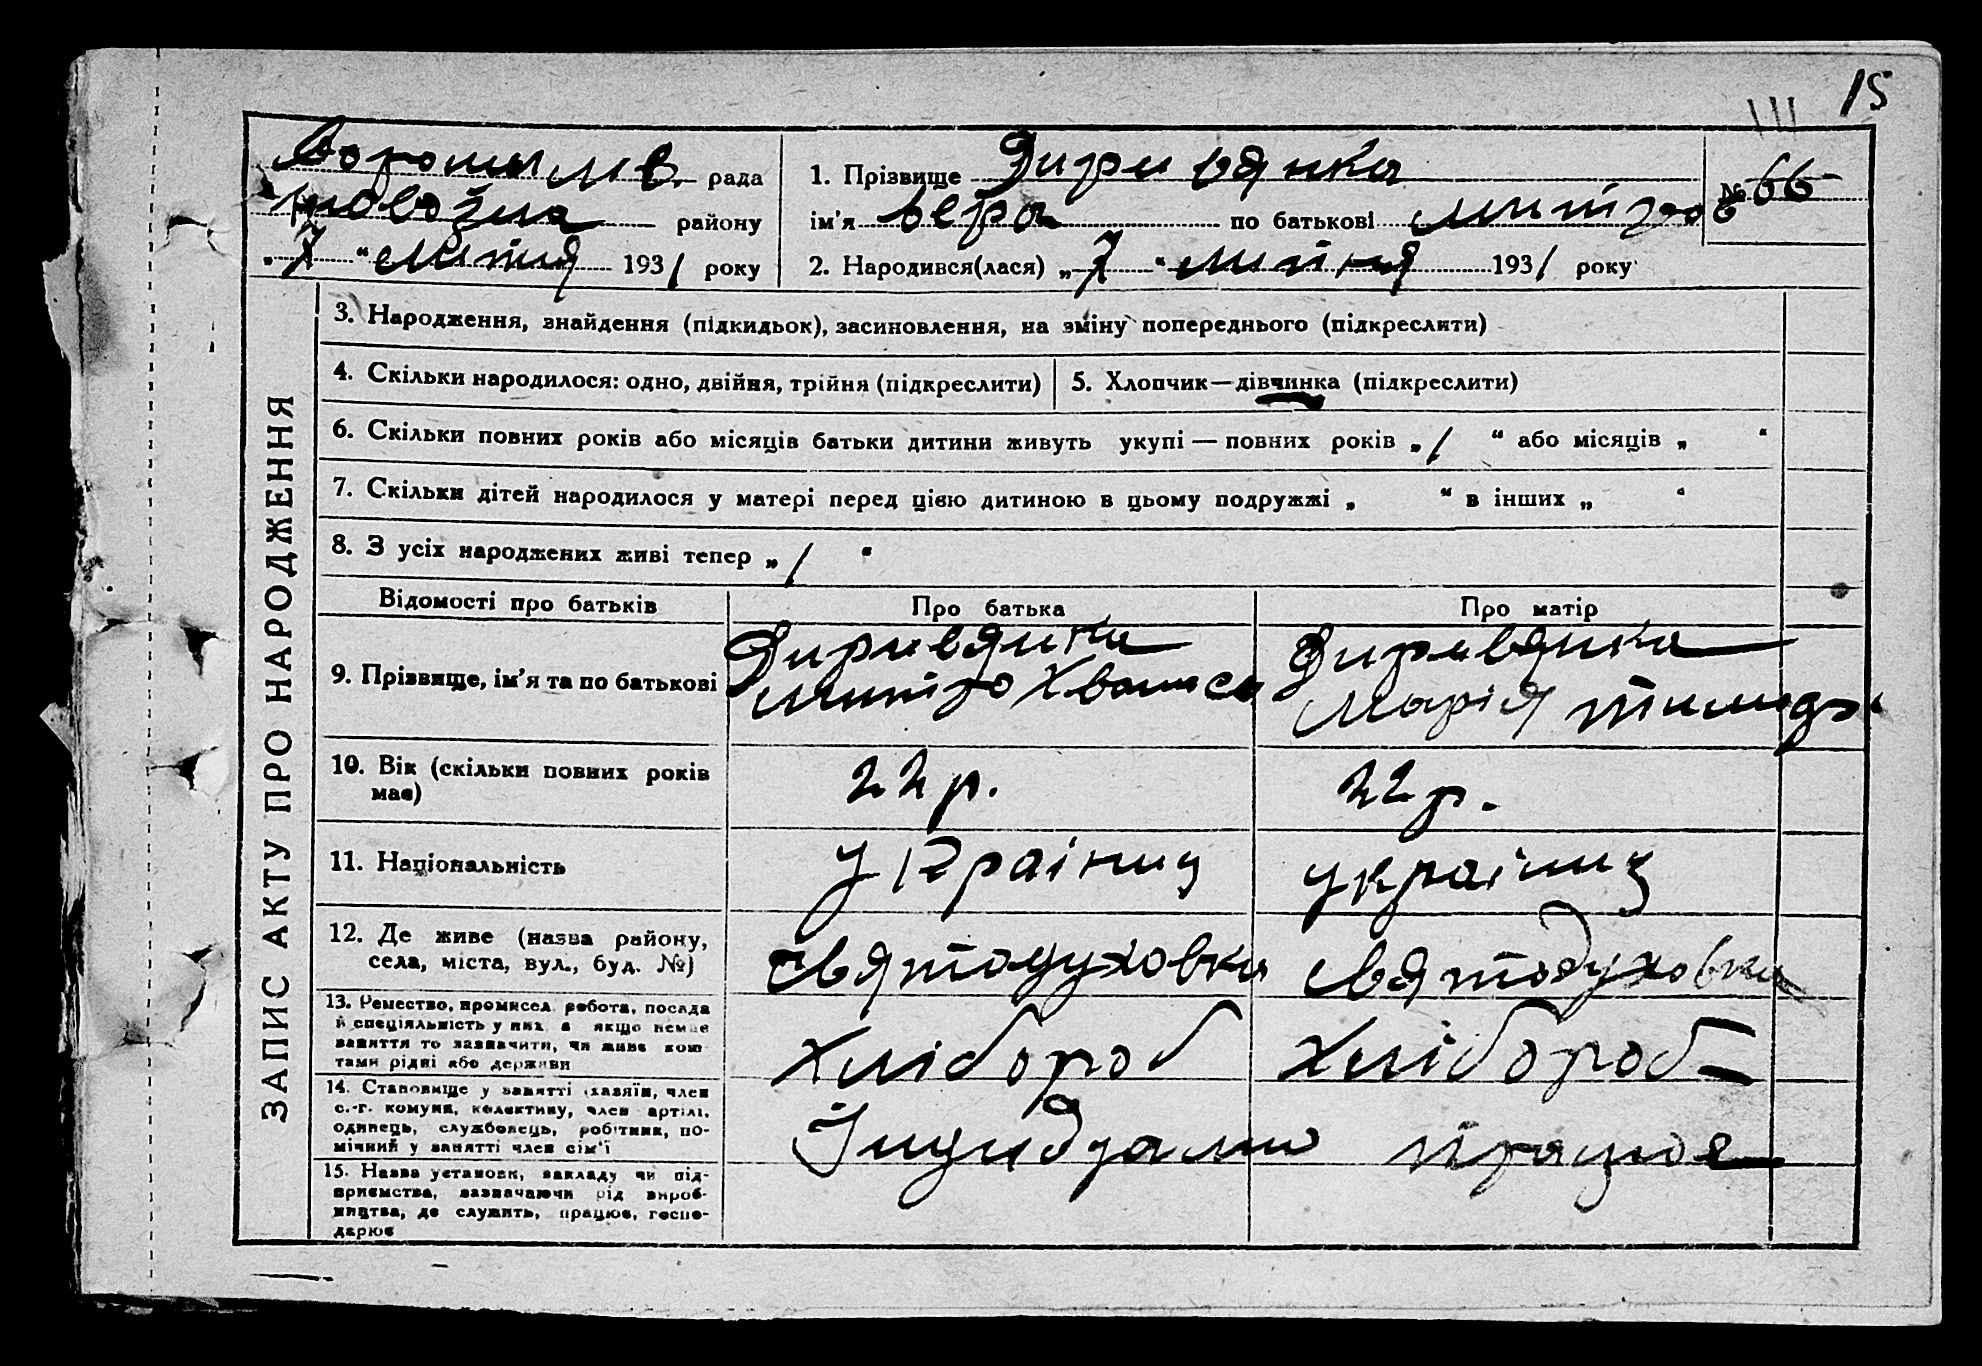 15
Ворошилів. рада
району
„7“ липня 1931 року
1. Прізвище Диривянка
ім'я Вера по батькові Митров
№ 66
2. Народився(лася) „7“ липня 1931 року
ЗАПИС АКТУ ПРО НАРОДЖЕННЯ
3. Народження, знайдення (підкидьок), засиновлення, на зміну попереднього (підкреслити)
4. Скільки народилося: одно, двійня, трійня (підкреслити)
5. Хлопчик—дівчинка (підкреслити)
6. Скільки повних років або місяців батьки дитини живуть укупі — повних років „1“ або місяців „ “
7. Скільки дітей народилося у матері перед цією дитиною в цьому подружжі „ “ в інших „ “
8. З усіх народжених живі тепер „1“
Відомості про батьків Про батька Про матір
9. Прізвище, ім'я та по батькові
Диривянка
Митро
Диривянка
Марія
10. Вік (скільки повних років
має)
22 р.
22 р.
11. Національність
українц
українц
12. Де живе (назва району,
села, міста, вул., буд. №)
Святодуховка
Святодуховка
13. Ремество, промисел робота, посада
й спеціяльність у них а якщо немає
заняття то зазначити, чи живе кош-
тами рідні або держави
Хлібороб
Хлібороб
14. Становище у занятті (хазяїн, член
с.-г. комуни, колективу, член артілі,
одинець, службовець, робітник, по-
мічний у занятті член сім'ї
працює
15. Назва установи, закладу чи під-
приємства, зазначаючи рід вироб-
ництва, де служить, працює, госпо-
дарює